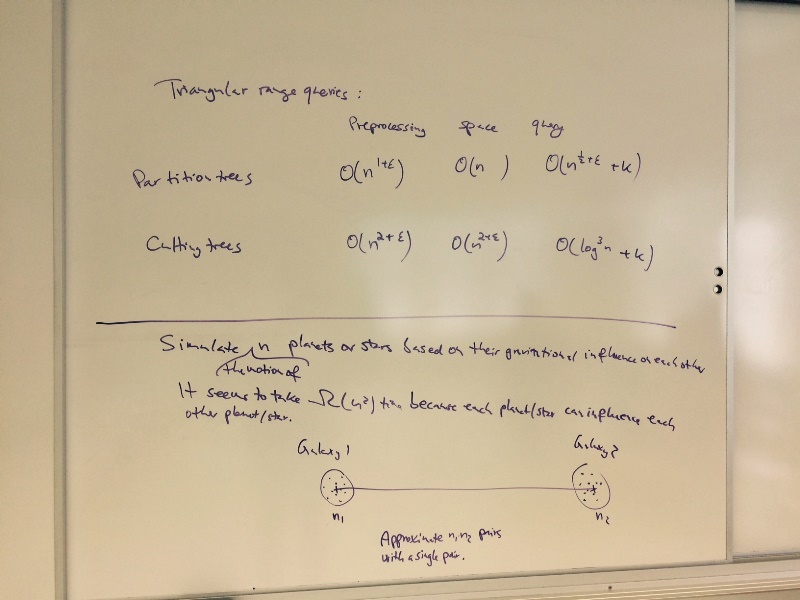 Triangular range queries :
Preprocessing space query
Partition trees O(n^{1+ε}) O(n ) O(n^{½+ε} + k)
Cutting trees O(n^{2+ε}) O(n^{2+ε}) O(log³n + k)
Simulate n planets or stars based on their gravitational influence on each other
the motion of
It seems to take Ω(n²) time because each planet/star can influence each
other planet/star.
Galaxy 1 Galaxy 2
n₁ n₂
Approximate n₁n₂ pairs
with a single pair.